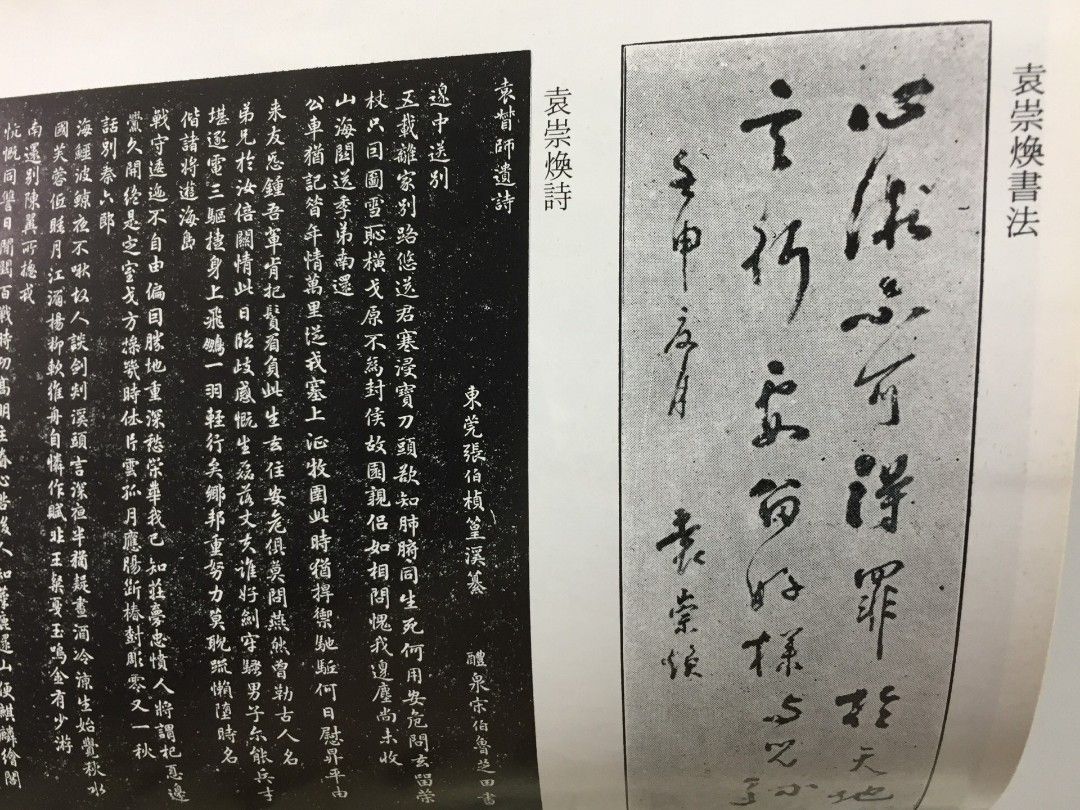 袁崇煥書法
心術不可得罪於天地
言行要留好樣與兒孫
壬申夏月
袁崇煥
袁崇煥詩
袁督師遺詩
東莞張伯楨篁溪纂
醴泉宋伯魯芝田書
邊中送別
五載離家別路悠送君寒浸寶刀頭欲知肺腑同生死何用安危問去留榮
杖只因圖雪恥橫戈原不為封侯故園親侶如相問愧我邊塵尚未收
山海關送季弟南還
公車猶記昔年情萬里從我塞上征牧圉此時猶捍禦馳驅何日慰昇平由
來友愛鍾吾輩肯把鬚眉負此生去住安危俱莫問燕然曾勒古人名
弟兄於汝倍關情此日臨歧感慨生磊落丈夫誰好劍牢騷男子爾能兵才
堪逐電三驅捷身上飛鵬一羽輕行矣鄉邦重努力莫耽疏懶墮時名
偕諸將遊海島
戰守逶迤不自由偏因勝地重深愁榮華我已知莊夢忠憤人將謂杞憂邊
釁久開終是定室戈方操幾時休片雲孤月應腸斷椿樹彫零又一秋
話別秦六郎
海鱷波鯨夜不啾故人談劍剡溪頭言深夜半猶疑晝酒冷涼生始覺秋水
國芙蓉低睡月江湄楊柳軟維舟自憐作賦非王粲戛玉鳴金有少游
南還別陳翼所總戎
慷慨同仇日間關百戰時功高明主眷心苦後人知麋鹿還山便麒麟繪閣